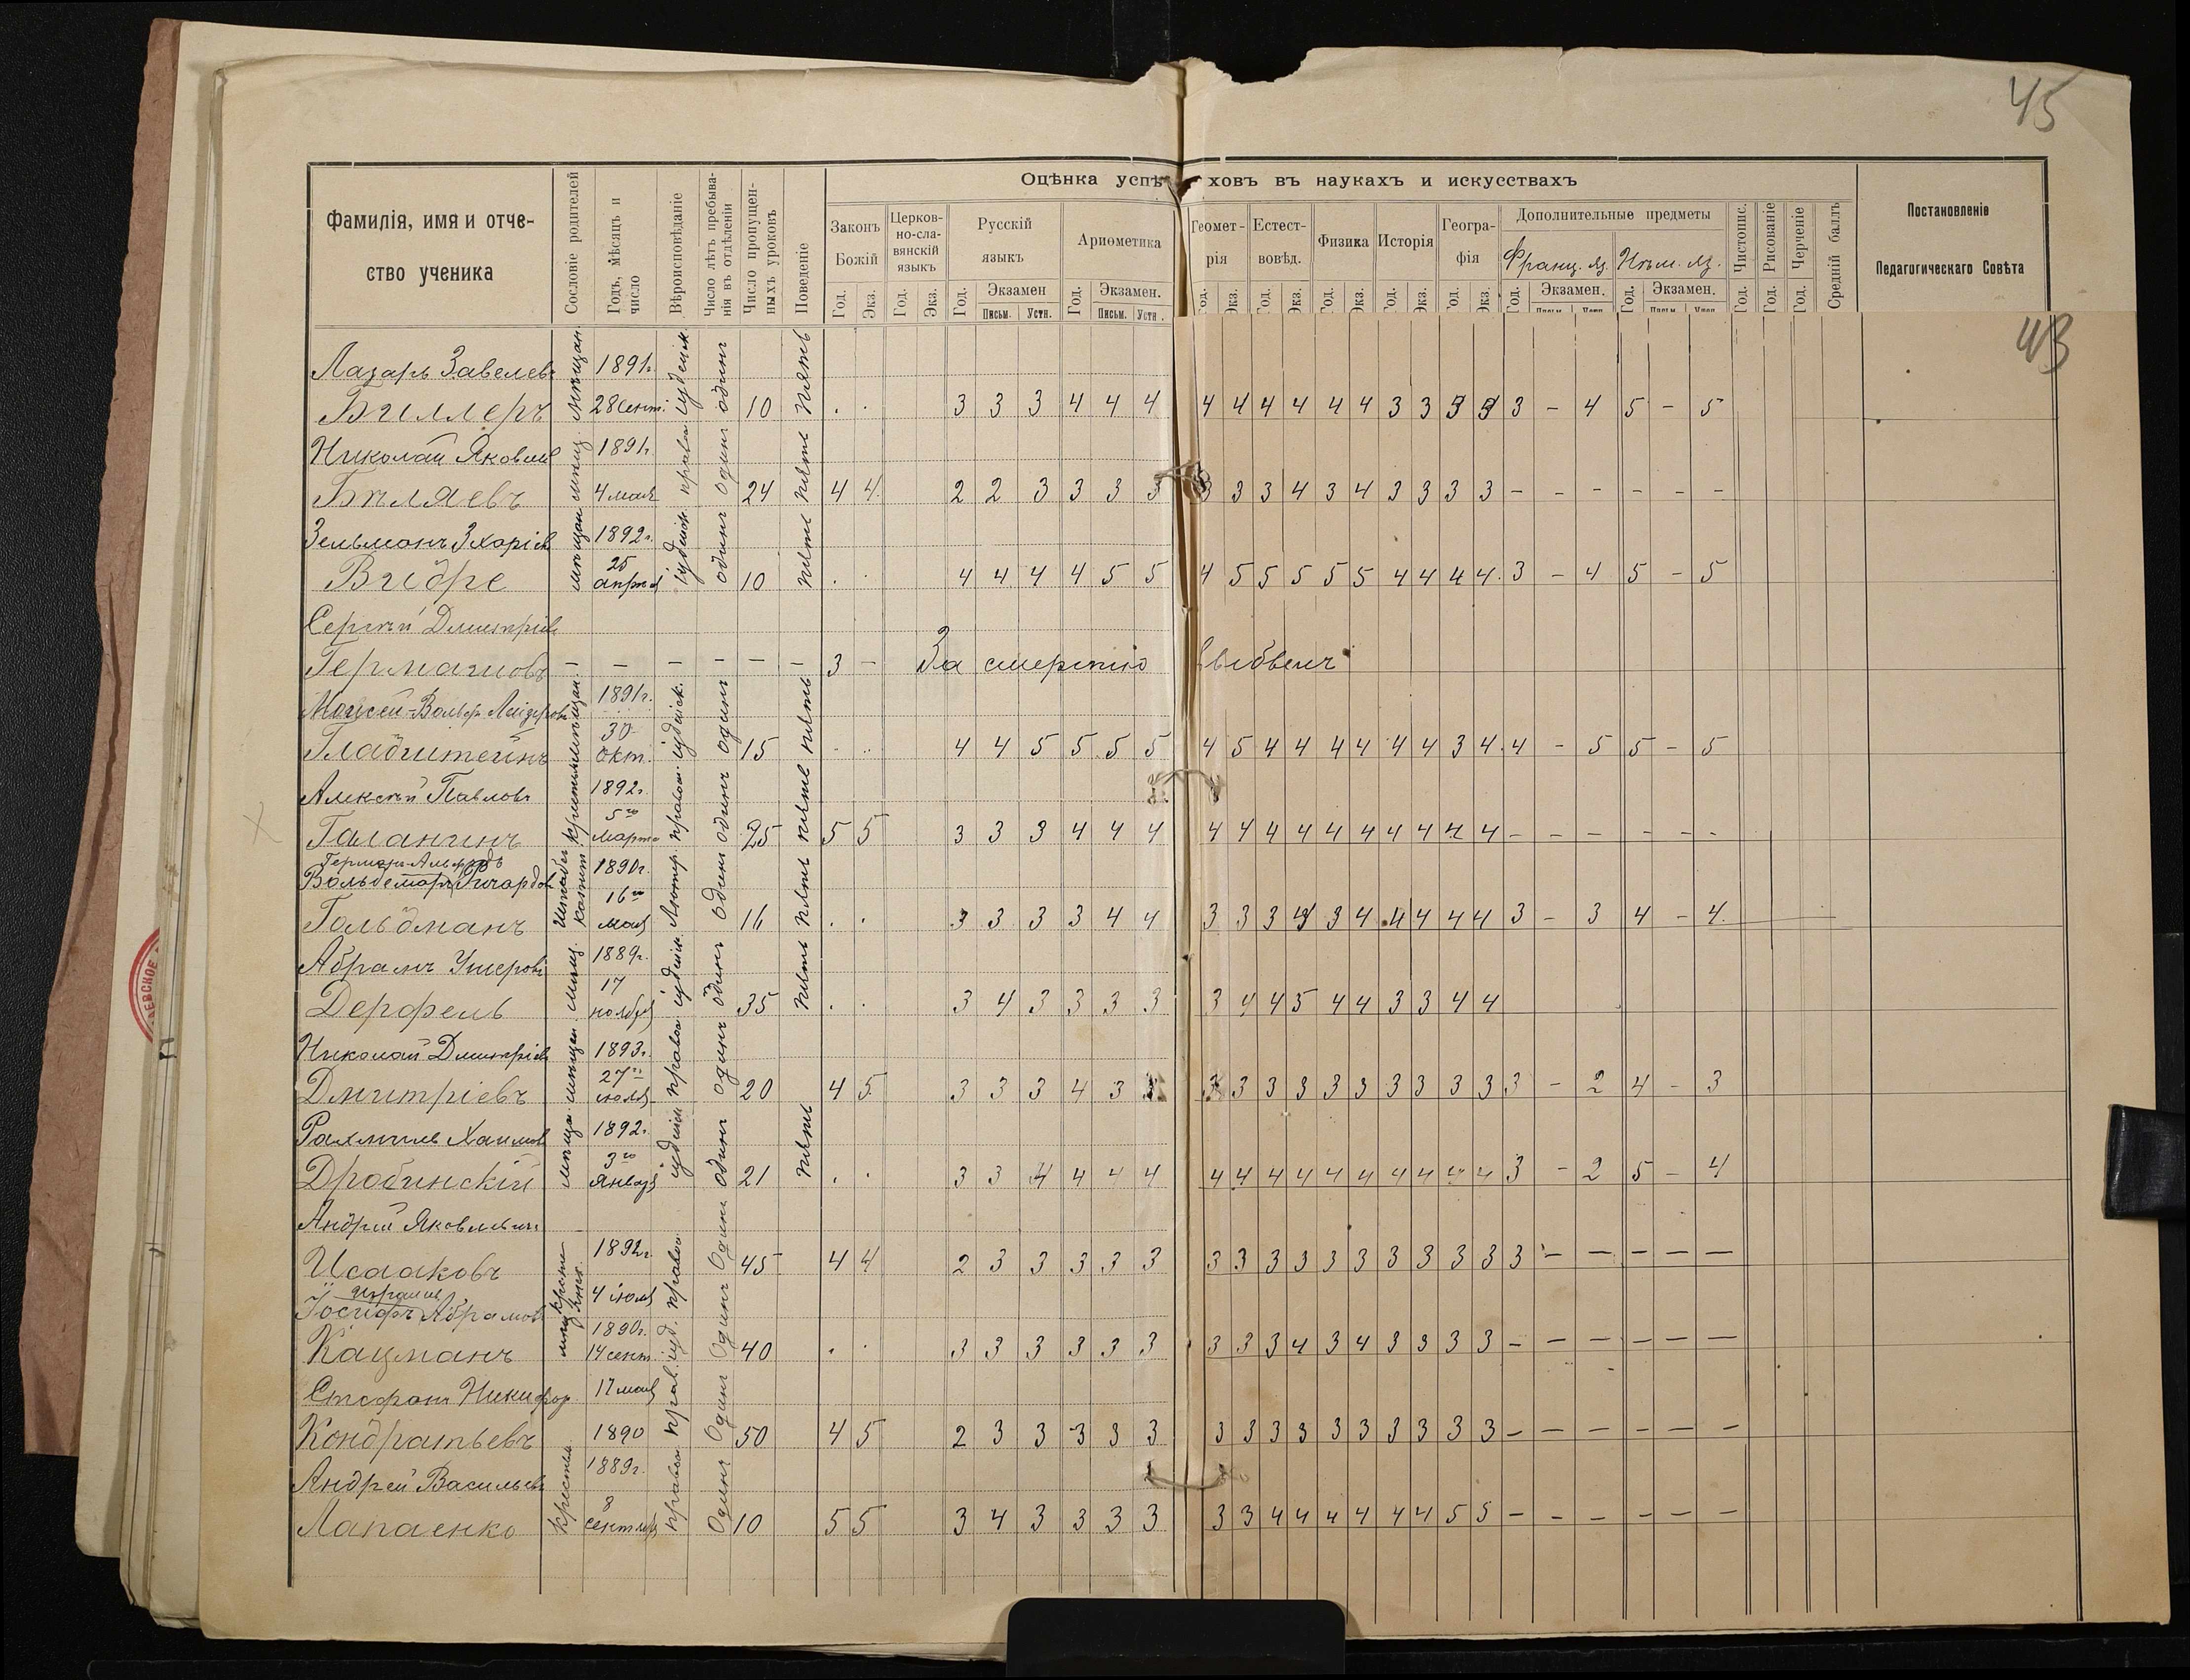 45
Фамилія, имя и отче-
ство ученика
Сословіе родителей
Годъ, мѣсяцъ и
число
Вѣроисповѣданіе
Число лѣтъ пребыва-
нія въ отдѣленіи
Число пропущен-
ныхъ уроковъ
Поведеніе
Оцѣнка успѣховъ въ наукахъ и искусствахъ
Законъ
Божій
Церков-
но-сла-
вянскій
языкъ
Русскій
языкъ
Ариѳметика
Геомет-
рія
Естест-
вовѣд.
Физика
Исторія
Геогра-
фія
Дополнительные предметы
Франц. яз. Нѣм. яз.
Чистопис.
Рисованіе
Черченіе
Средній баллъ
Постановленіе
Педагогическаго Совѣта
Год. Экз. Год. Экз. Год. Экзамен Год. Экзамен. Год. Экз. Год. Экз. Год. Экз. Год. Экз. Год. Экз. Год. Экзамен. Год. Экзамен. Год. Год. Год.
Письм. Устн. Письм. Устн.
43
Лазарь Завелев 1891г.
Биллеръ мѣщан. 28 Сент. іудейск. одинъ 10 пять . . 3 3 3 4 4 4 4 4 4 4 4 4 3 3 3 3 3 – 4 5 – 5
Николай Яковлев 1891г.
Бѣляевъ мѣщ. 4 мая правос одинъ 24 пять 4 4 2 2 3 3 3 3 3 3 3 4 3 4 3 3 3 3 – – – – – –
Зельманъ Зхаріев 1892г.
Видре мѣщан 25 апрѣл іудейск. одинъ 10 пять . . 4 4 4 4 5 5 4 5 5 5 5 5 4 4 4 4 3 – 4 5 – 5
Сергѣй Дмитріев
Германовъ – – – – – – 3 – За смертію выбылъ
Моисей-Вольф Лейзеров 1891г.
Гладштейнъ мѣщан. 30 окт. іудейск. одинъ 15 пять . . 4 4 5 5 5 5 4 5 4 4 4 4 4 4 3 4 4 – 5 5 – 5
Алексѣй Павловъ 1892г.
Галанинъ 5го Марта правос. одинъ 25 пять 5 5 3 3 3 4 4 4 4 4 4 4 4 4 4 4 4 4 – – – – – –
Германъ-Альфредъ
Вольдемаръ Ричардов 1890г.
Гольдманъ 16го мая Лютер. одинъ 16 пять . . 3 3 3 3 4 4 3 3 3 4 3 4 4 4 4 4 3 – 3 4 – 4
Абрамъ Ушеров 1889г.
Дерфель мѣщ. 17 ноября іудейск. одинъ 35 пять . . 3 4 3 3 3 3 3 4 4 5 4 4 3 3 4 4
Николай Дмитріев 1893г.
Дмитріевъ мѣщан 27го іюля правос одинъ 20 4 5 3 3 3 4 3 3 3 3 3 3 3 3 3 3 3 3 3 – 2 4 – 3
Рахмиль Хаимов 1892г.
Дробинскій мѣщан 3го Января іудейск одинъ 21 пять . . 3 3 4 4 4 4 4 4 4 4 4 4 4 4 4 4 3 – 2 5 – 4
Андрей Яковлевич
Исааковъ 1892г. 4 іюля правос. Одинъ 45 4 4 2 3 3 3 3 3 3 3 3 3 3 3 3 3 3 3 3 – – – – –
Израиль
Іосифъ Абрамов
Кацманъ мѣщ 1890г. 14 сент. іуд. Одинъ 40 . . 3 3 3 3 3 3 3 3 3 4 3 4 3 3 3 3 – – – – – –
Стефанъ Никифор. 17 мая
Кондратьевъ 1890 прав. Одинъ 50 4 5 2 3 3 3 3 3 3 3 3 3 3 3 3 3 3 3 – – – – – –
Андрей Васильев 1889г.
Лапаенко крестьян 8 сентября правос Одинъ 10 5 5 3 4 3 3 3 3 3 3 4 4 4 4 4 4 5 5 – – – – – –